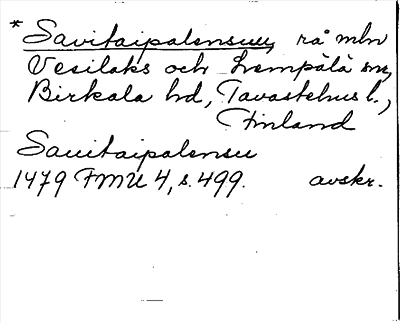 * Savitaipalensuu, rå mln
Vesilaks och Lempälä sn,
Birkala hd, Tavastehus l.,
Finland
Sauitaipalensu
1479 FMU 4, s. 499. avskr.